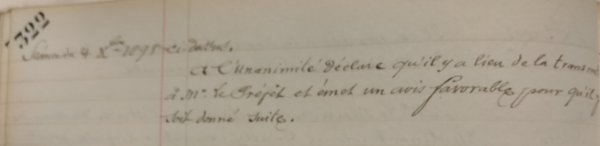 322
Séance du 4 Xbre 1898 ci-dessus.
A l'unanimité déclare qu'il y a lieu de la transm
à Mr. le Préfet et émet un avis favorable pour qu'il y
soit donné suite.